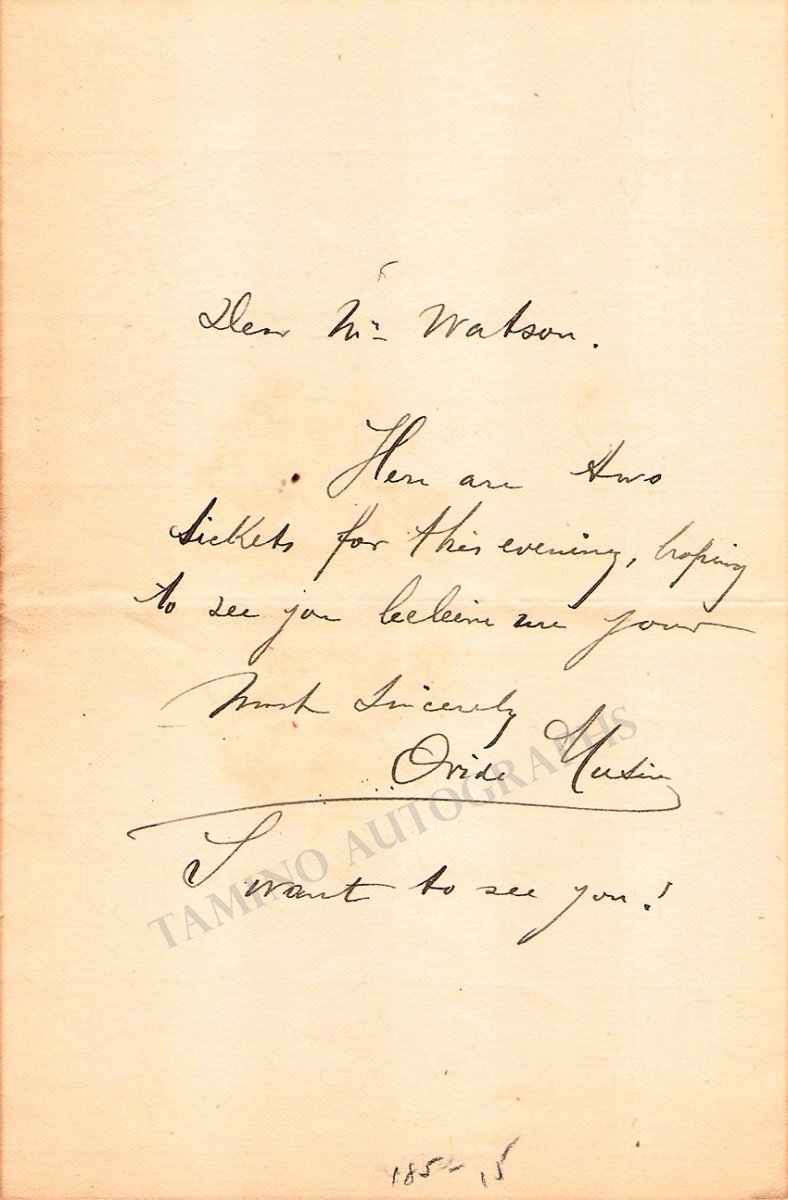 Dear Mr Watson.
Here are two
tickets for this evening, hoping
to see you beleive me your
Most Sincerely
Ovide Musin
I want to see you!
TAMINO AUTOGRAPHS